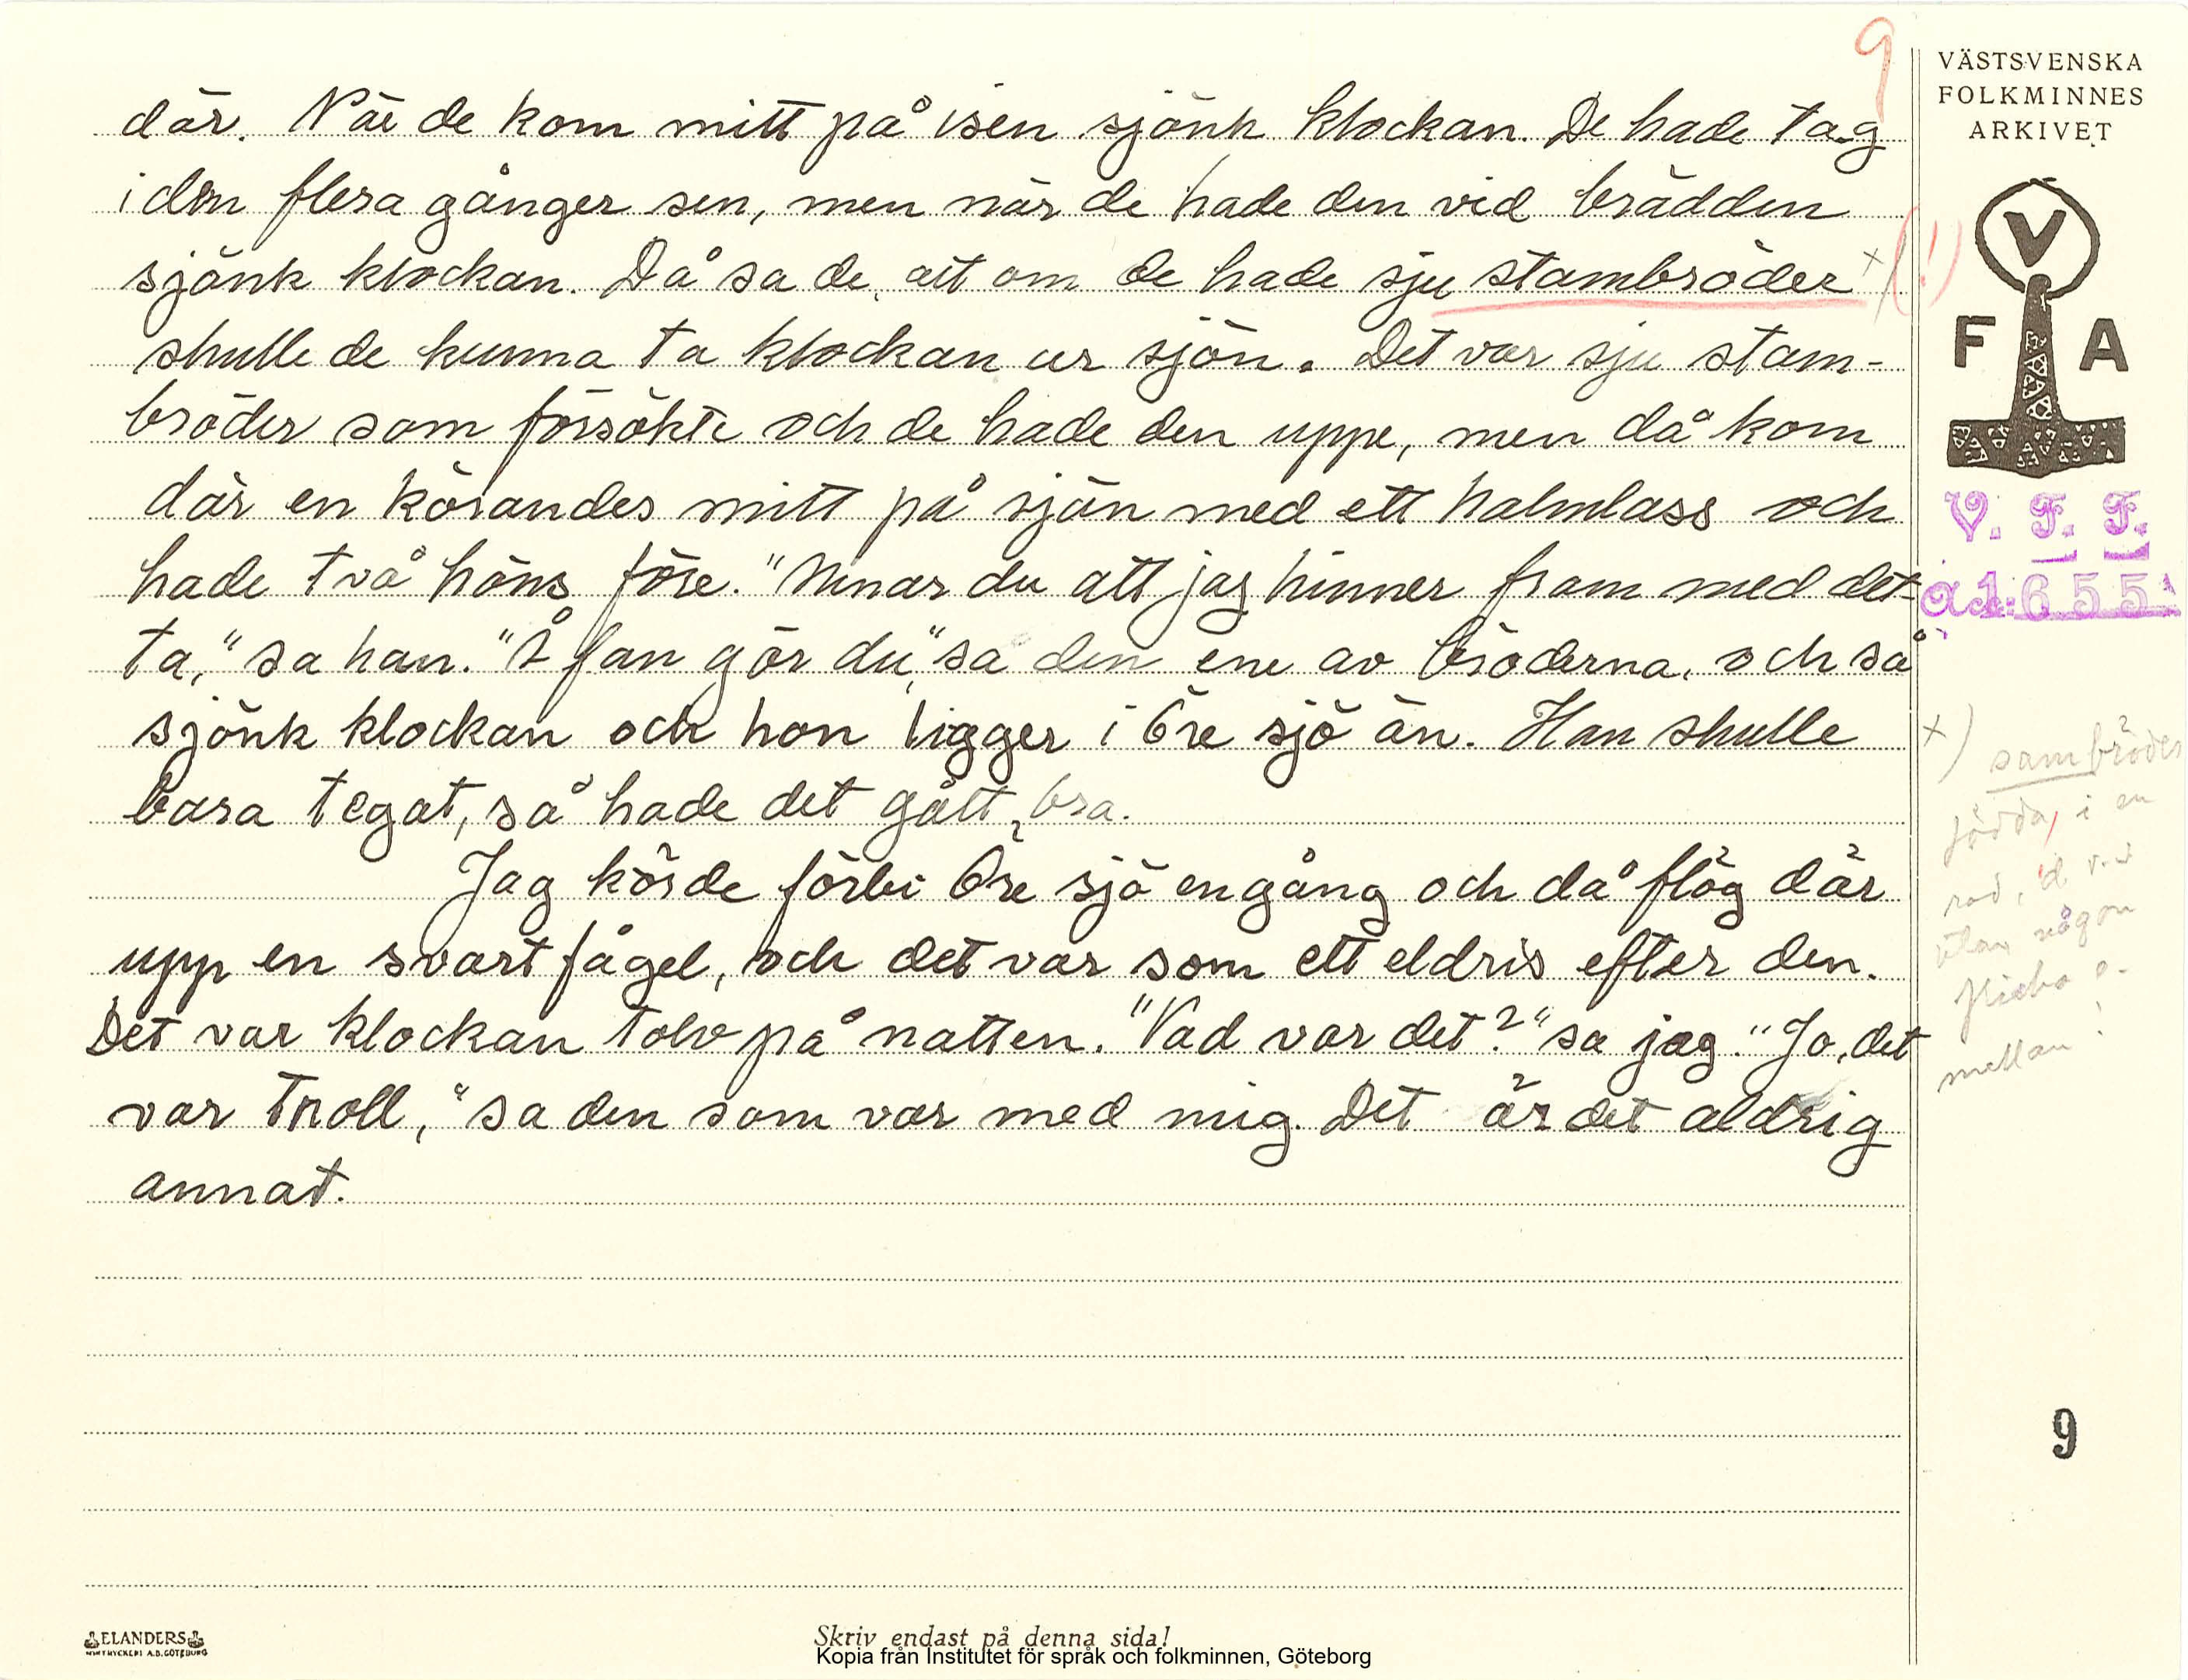 9
där. När de kom mitt på isen sjönk klockan. De hade tag
i den flera gånger sen, men när de hade den vid brädden
sjönk klockan. Då sa de, att om de hade sju stambröder x) (!)
skulle de kunna ta klockan ur sjön. Det var sju stam-
bröder som försökte och de hade den uppe, men då kom
där en körandes mitt på sjön med ett halmlass och
hade två höns före. "Menar du att jag hinner fram med det-
ta," sa han. "Å fan gör du," sa den ene av bröderna, och så
sjönk klockan och hon ligger i Öre sjö än. Han skulle
bara tegat, så hade det gått bra.
Jag körde förbi Öre sjö engång och då flög där
upp en svart fågel, och det var som ett eldris efter den.
Det var klockan tolv på natten. "Vad var det?" sa jag. "Jo, det
var troll," sa den som var med mig. Det är det aldrig
annat.
VÄSTSVENSKA
FOLKMINNES
ARKIVET
V
F A
V. F. F.
Acc: 1655
x) sambröder
födda i en
rad,
utan någon
flicka e.
mellan!
9
ELANDERS
A.B. GÖTEBORG
Skriv endast på denna sida!
Kopia från Institutet för språk och folkminnen, Göteborg